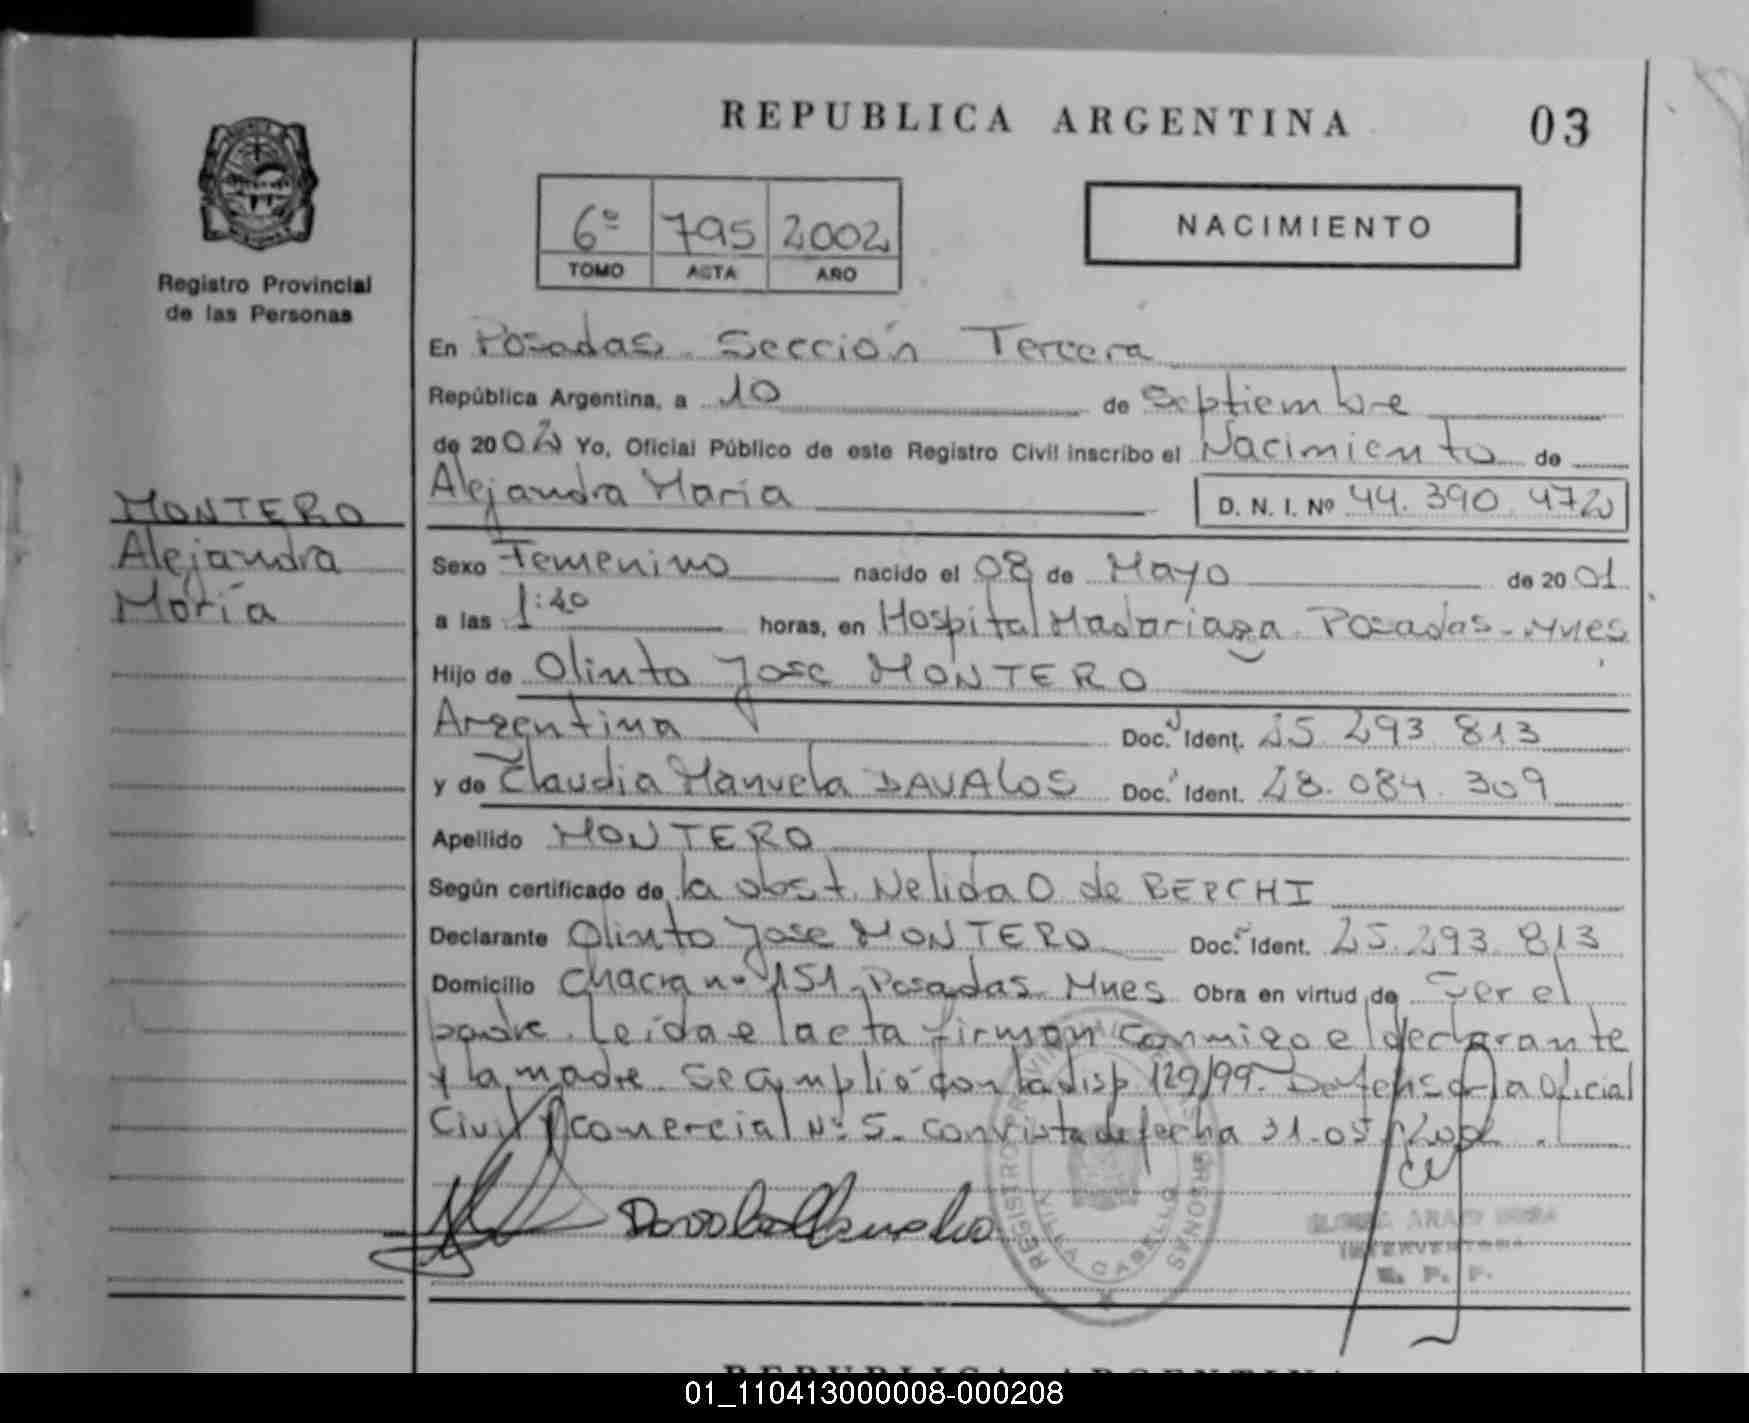 REPUBLICA ARGENTINA
03
6º 795 2002
TOMO ACTA AÑO
NACIMIENTO
Registro Provincial
de las Personas
En Posadas. Sección Tercera
República Argentina, a 10 de Septiembre
de 2002 Yo, Oficial Público de este Registro Civil inscribo el Nacimiento de
Alejandra María D. N. I. Nº 44.390.472
MONTERO
Alejandra
María
Sexo Femenino nacido el 08 de Mayo de 2001
a las 1:40 horas, en Hospital Madariaga Posadas-Mnes
Hijo de Olinto Jose MONTERO
Argentina Doc. Ident. 25.293.813
y de Claudia Manuela DAVALOS Doc. Ident. 28.084.309
Apellido MONTERO
Según certificado de la obst. Nelida O de BERCHI
Declarante Olinto Jose MONTERO Doc. Ident. 25.293.813
Domicilio Chacra nº 151. Posadas Mnes Obra en virtud de ser el
padre. Leída el acta firman conmigo el declarante
y la madre. Se cumplió con la disp 129/99. Defensoría Oficial
Civil y Comercial Nº 5. con vista de fecha 31.05.2002.
REGISTRO PROVINCIAL DE LAS PERSONAS
VILLA CABELLO
INTERVENTORA
R. P. P.
REPUBLICA ARGENTINA
01_110413000008-000208